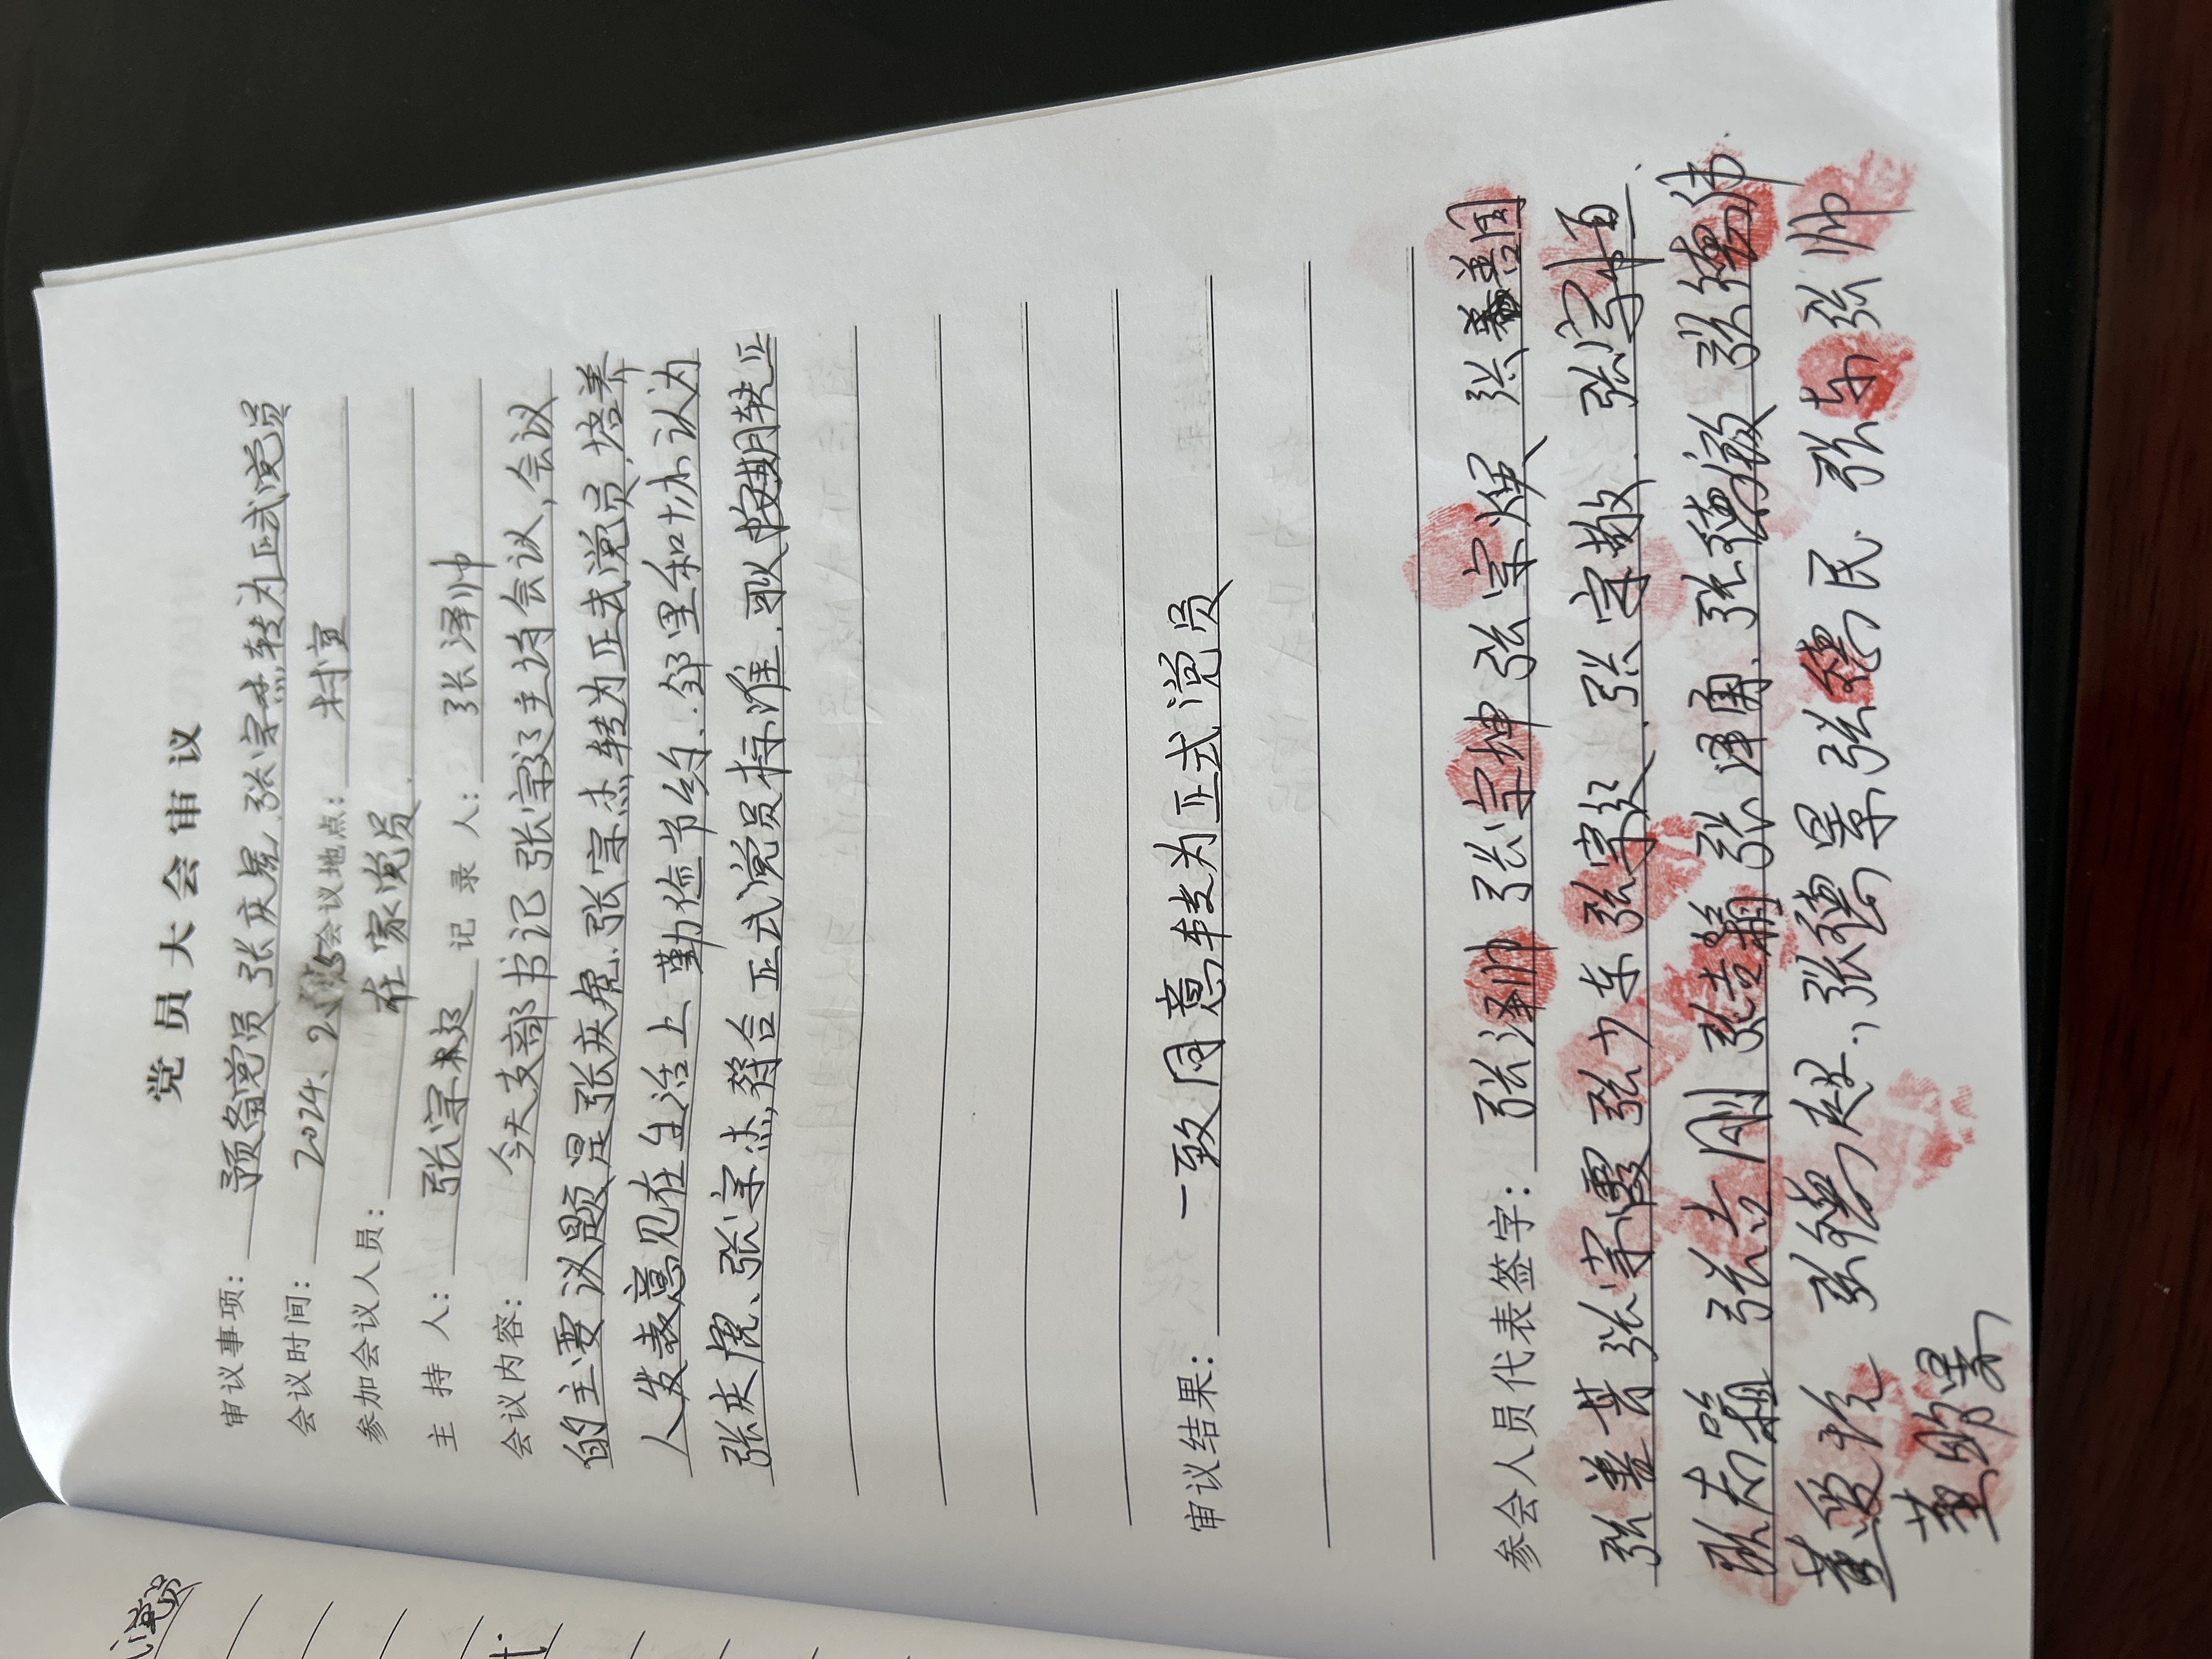 党员
党员大会审议
审议事项: 预备党员 张庆虎、张宗杰转为正式党员
会议时间: 2024、2、 会议地点: 村室
参加会议人员: 在家党员.
主持人: 张宗 记录人: 张泽帅
会议内容: 今天支部书记 张宗 主持会议,会议
的主要议题是张庆虎、张宗杰转为正式党员,培养
人发表意见在生活上 勤俭节约、邻里和 认为
张庆虎、张宗杰,符合正式党员标准.可以按期转正
审议结果: 一致同意转为正式党员
参会人员代表签字: 张泽帅 张宗坤 张宗焕 张善国
张善 张宗霞 张少东 张宗 . 张宗敬. 张宗恒、
张志 张吉刚 张吉 张泽勇. 张德敏 张德伟.
董爱玲 张德超., 张德景 张德民. 张东 张帅
董